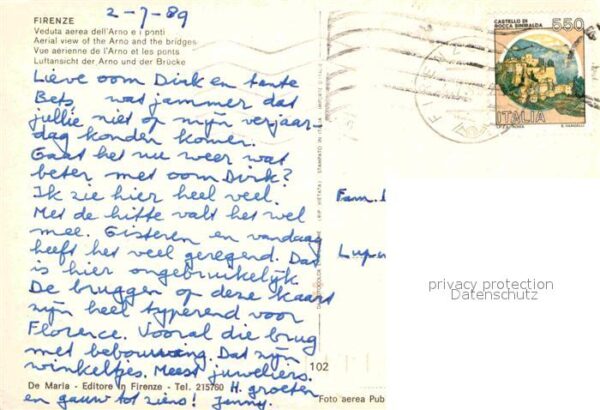 2-7-89
FIRENZE
Veduta aerea dell'Arno e i ponti
Aerial view of the Arno and the bridges
Vue aérienne de l'Arno et les ponts
Luftansicht der Arno und der Brücke
Lieve oom Dirk en tante
Bets, wat jammer dat
jullie niet op mijn verjaar-
dag konden komen.
Gaat het nu weer wat
beter met oom Dirk?
Ik zie hier heel veel.
Met de hitte valt het wel
mee. Gisteren en vandaag
heeft het veel geregend. Dat
is hier ongebruikelijk
De bruggen op deze kaart
zijn heel typerend voor
Florence. Vooral die brug
met bebouwing. Dat zijn
winkeltjes. Meest juweliers.
H. groeten
en gauw tot ziens! Jenny.
De Maria - Editore in Firenze - Tel. 215760
102
Foto aerea Pub
Fam.
CASTELLO DI
ROCCA SINIBALDA
550
ITALIA
privacy protection
Datenschutz